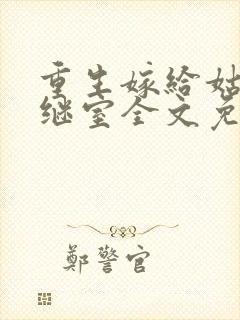 重生嫁给姑
继室全文免
鄭警官